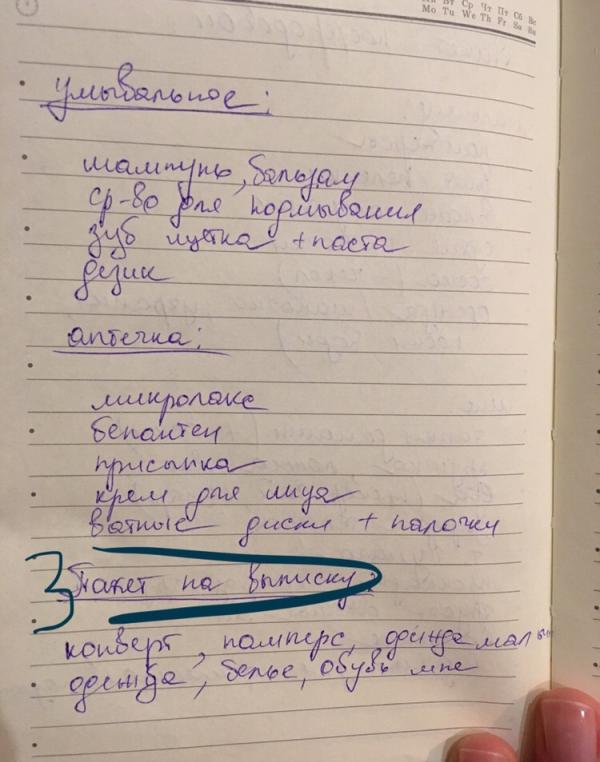 Вт Ср Чт Пт Сб Вс
Mo Tu We Th Fr Sa Su
умывальное:
шампунь, бальзам
ср-во для подмывания
зуб щетка + паста
дезик
аптечка:
микролакс
бепантен
присыпка
крем для лица
ватные диски + палочки
3 Пакет на выписку:
конверт, памперс, одежда
одежда, белье, обувь мне